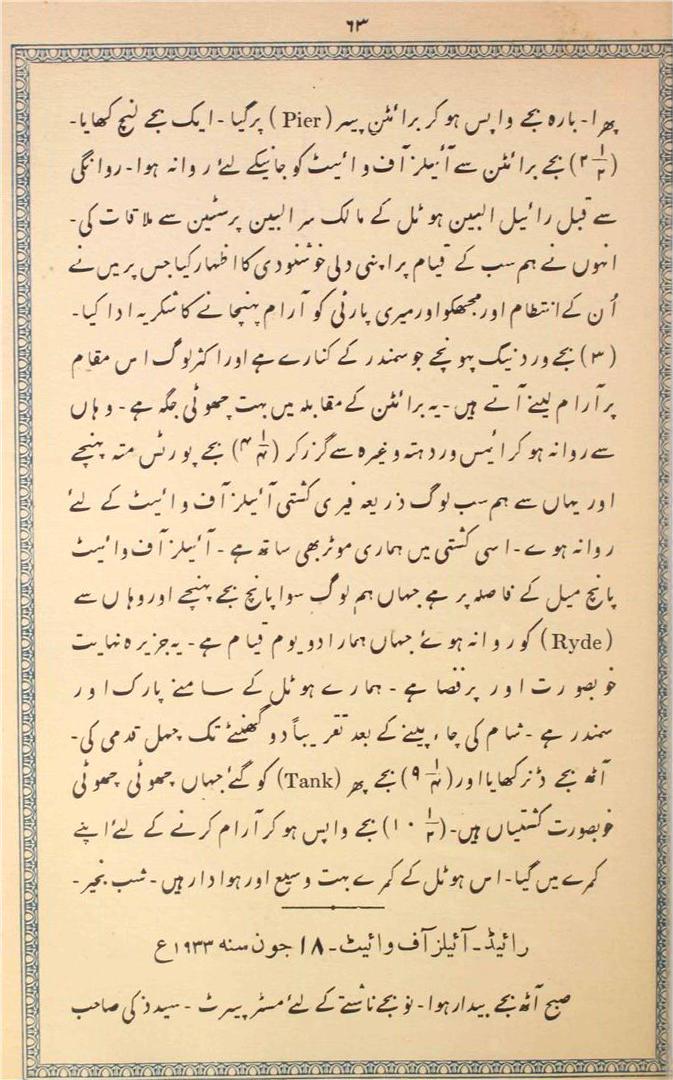 ۶۳
پھرا۔ بارہ بجے واپس ہو کر برائٹن پیر (Pier) پر گیا۔ ایک بجے لنچ کھایا۔
(۲ ۱/۲) بجے برائٹن سے آئیلز آف وائیٹ کو جانیکے لئے روانہ ہوا۔ روانگی
سے قبل رائیل البین ہوٹل کے مالک سر البین پرسٹین سے ملاقات کی۔
انہوں نے ہم سب کے قیام پر اپنی دلی خوشنودی کا اظہار کیا جس پر میں نے
اُن کے انتظام اور مجھکو اور میری پارٹی کو آرام پہنچانے کا شکریہ ادا کیا۔
(۳) بجے وردنیگ پہونچے جو سمندر کے کنارے ہے اور اکثر لوگ اس مقام
پر آرام لینے آتے ہیں۔ یہ برائٹن کے مقابلہ میں بہت چھوٹی جگہ ہے۔ وہاں
سے روانہ ہو کر ائمس وردہتہ وغیرہ سے گزر کر (۴ ۱/۴) بجے پورٹس متہ پہنچے
اور یہاں سے ہم سب لوگ ذریعہ فیری کشتی آئیلز آف وائیٹ کے لئے
روانہ ہوے۔ اسی کشتی میں ہماری موٹر بھی ساتھ ہے۔ آئیلز آف وائیٹ
پانچ میل کے فاصلہ پر ہے جہاں ہم لوگ سوا پانچ بجے پہنچے اور وہاں سے
(Ryde) کو روانہ ہوئے جہاں ہمارا دو یوم قیام ہے۔ یہ جزیرہ نہایت
خوبصورت اور پر فضا ہے۔ ہمارے ہوٹل کے سامنے پارک اور
سمندر ہے۔ شام کی چاء پینے کے بعد تقریباً دو گھنٹے تک چہل قدمی کی۔
آٹھ بجے ڈنر کھایا اور (۹ ۱/۴) بجے پھر (Tank) کو گئے جہاں چھوٹی چھوٹی
خوبصورت کشتیاں ہیں۔ (۱۰ ۱/۲) بجے واپس ہو کر آرام کرنے کے لئے اپنے
کمرے میں گیا۔ اس ہوٹل کے کمرے بہت وسیع اور ہوادار ہیں۔ شب بخیر۔
رائیڈ۔ آئیلز آف وائیٹ۔ ۱۸ جون سنہ ۱۹۳۳ع
صبح آٹھ بجے بیدار ہوا۔ نو بجے ناشتے کے لئے مسٹر پیرٹ۔ سید ذکی صاحب